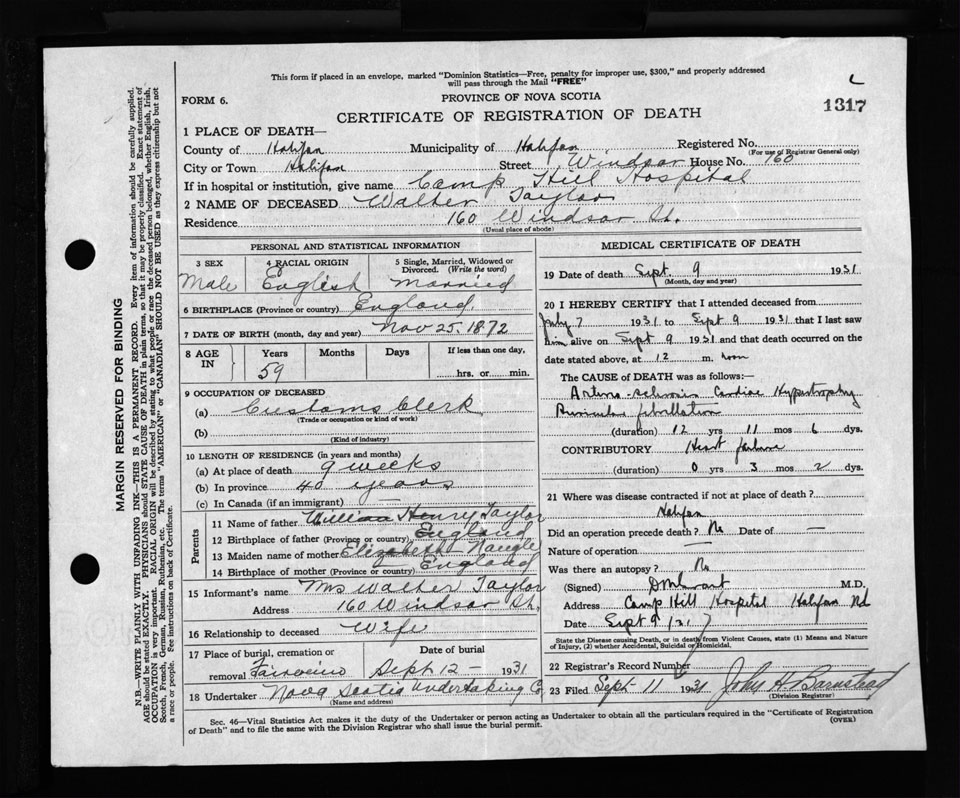 This form if placed in an envelope, marked "Dominion Statistics—Free, penalty for improper use, $300," and properly addressed
will pass through the Mail "FREE"
FORM 6.
PROVINCE OF NOVA SCOTIA
1317
CERTIFICATE OF REGISTRATION OF DEATH
1 PLACE OF DEATH—
County of Halifax Municipality of Halifax Registered No.
(For use of Registrar General only)
City or Town Halifax Street Windsor House No. 160
If in hospital or institution, give name Camp Hill Hospital
2 NAME OF DECEASED Walter Taylor
Residence 160 Windsor St.
(Usual place of abode)
PERSONAL AND STATISTICAL INFORMATION
3 SEX 4 RACIAL ORIGIN 5 Single, Married, Widowed or
Divorced. (Write the word)
Male English Married
6 BIRTHPLACE (Province or country) England
7 DATE OF BIRTH (month, day and year) Nov 25. 1872
8 AGE IN Years Months Days If less than one day,
59 hrs. or min.
9 OCCUPATION OF DECEASED
(a) Customs Clerk
(Trade or occupation or kind of work)
(b)
(Kind of industry)
10 LENGTH OF RESIDENCE (in years and months)
(a) At place of death 9 weeks
(b) In province 40 years
(c) In Canada (if an immigrant)
Parents
11 Name of father William Henry Taylor
12 Birthplace of father (Province or country) England
13 Maiden name of mother Elizabeth Naugle
14 Birthplace of mother (Province or country) England
15 Informant's name Mrs Walter Taylor
Address 160 Windsor St.
16 Relationship to deceased Wife
17 Place of burial, cremation or Date of burial
removal Fairview Sept 12 - 1931
18 Undertaker Nova Scotia Undertaking Co
(Name and address)
MEDICAL CERTIFICATE OF DEATH
19 Date of death Sept. 9 1931
(Month, day and year)
20 I HEREBY CERTIFY that I attended deceased from
July 7 1931 to Sept 9 1931 that I last saw
him alive on Sept 9 1931 and that death occurred on the
date stated above, at 12 m. noon
The CAUSE OF DEATH was as follows:—
Arterio-sclerosis Cardiac Hypertrophy
fibrillation
(duration) 12 yrs 11 mos 6 dys.
CONTRIBUTORY Heart failure
(duration) 0 yrs 3 mos 2 dys.
21 Where was disease contracted if not at place of death?
Halifax
Did an operation precede death? No Date of —
Nature of operation —
Was there an autopsy? No
(Signed) M.D.
Address Camp Hill Hospital Halifax
Date Sept 9/31
State the Disease causing Death, or in death from Violent Causes, state (1) Means and Nature
of Injury, (2) whether Accidental, Suicidal or Homicidal.
22 Registrar's Record Number
23 Filed Sept 11 1931 John H. Barnstead
(Division Registrar)
Sec. 46—Vital Statistics Act makes it the duty of the Undertaker or person acting as Undertaker to obtain all the particulars required in the "Certificate of Registration
of Death" and to file the same with the Division Registrar who shall issue the burial permit.
(OVER)
MARGIN RESERVED FOR BINDING
N.B.—WRITE PLAINLY WITH UNFADING INK—THIS IS A PERMANENT RECORD. Every item of information should be carefully supplied.
AGE should be stated EXACTLY. PHYSICIANS should STATE CAUSE OF DEATH in plain terms, so that it may be properly classified. Exact statement of
OCCUPATION is very important. RACIAL ORIGIN will be described by stating to what people or race the deceased person belonged, whether English, Irish,
Scotch, French, German, Russian, Ruthenian, etc. The terms "AMERICAN" or "CANADIAN" SHOULD NOT BE USED as they express citizenship but not
a race or people. See instructions on back of Certificate.